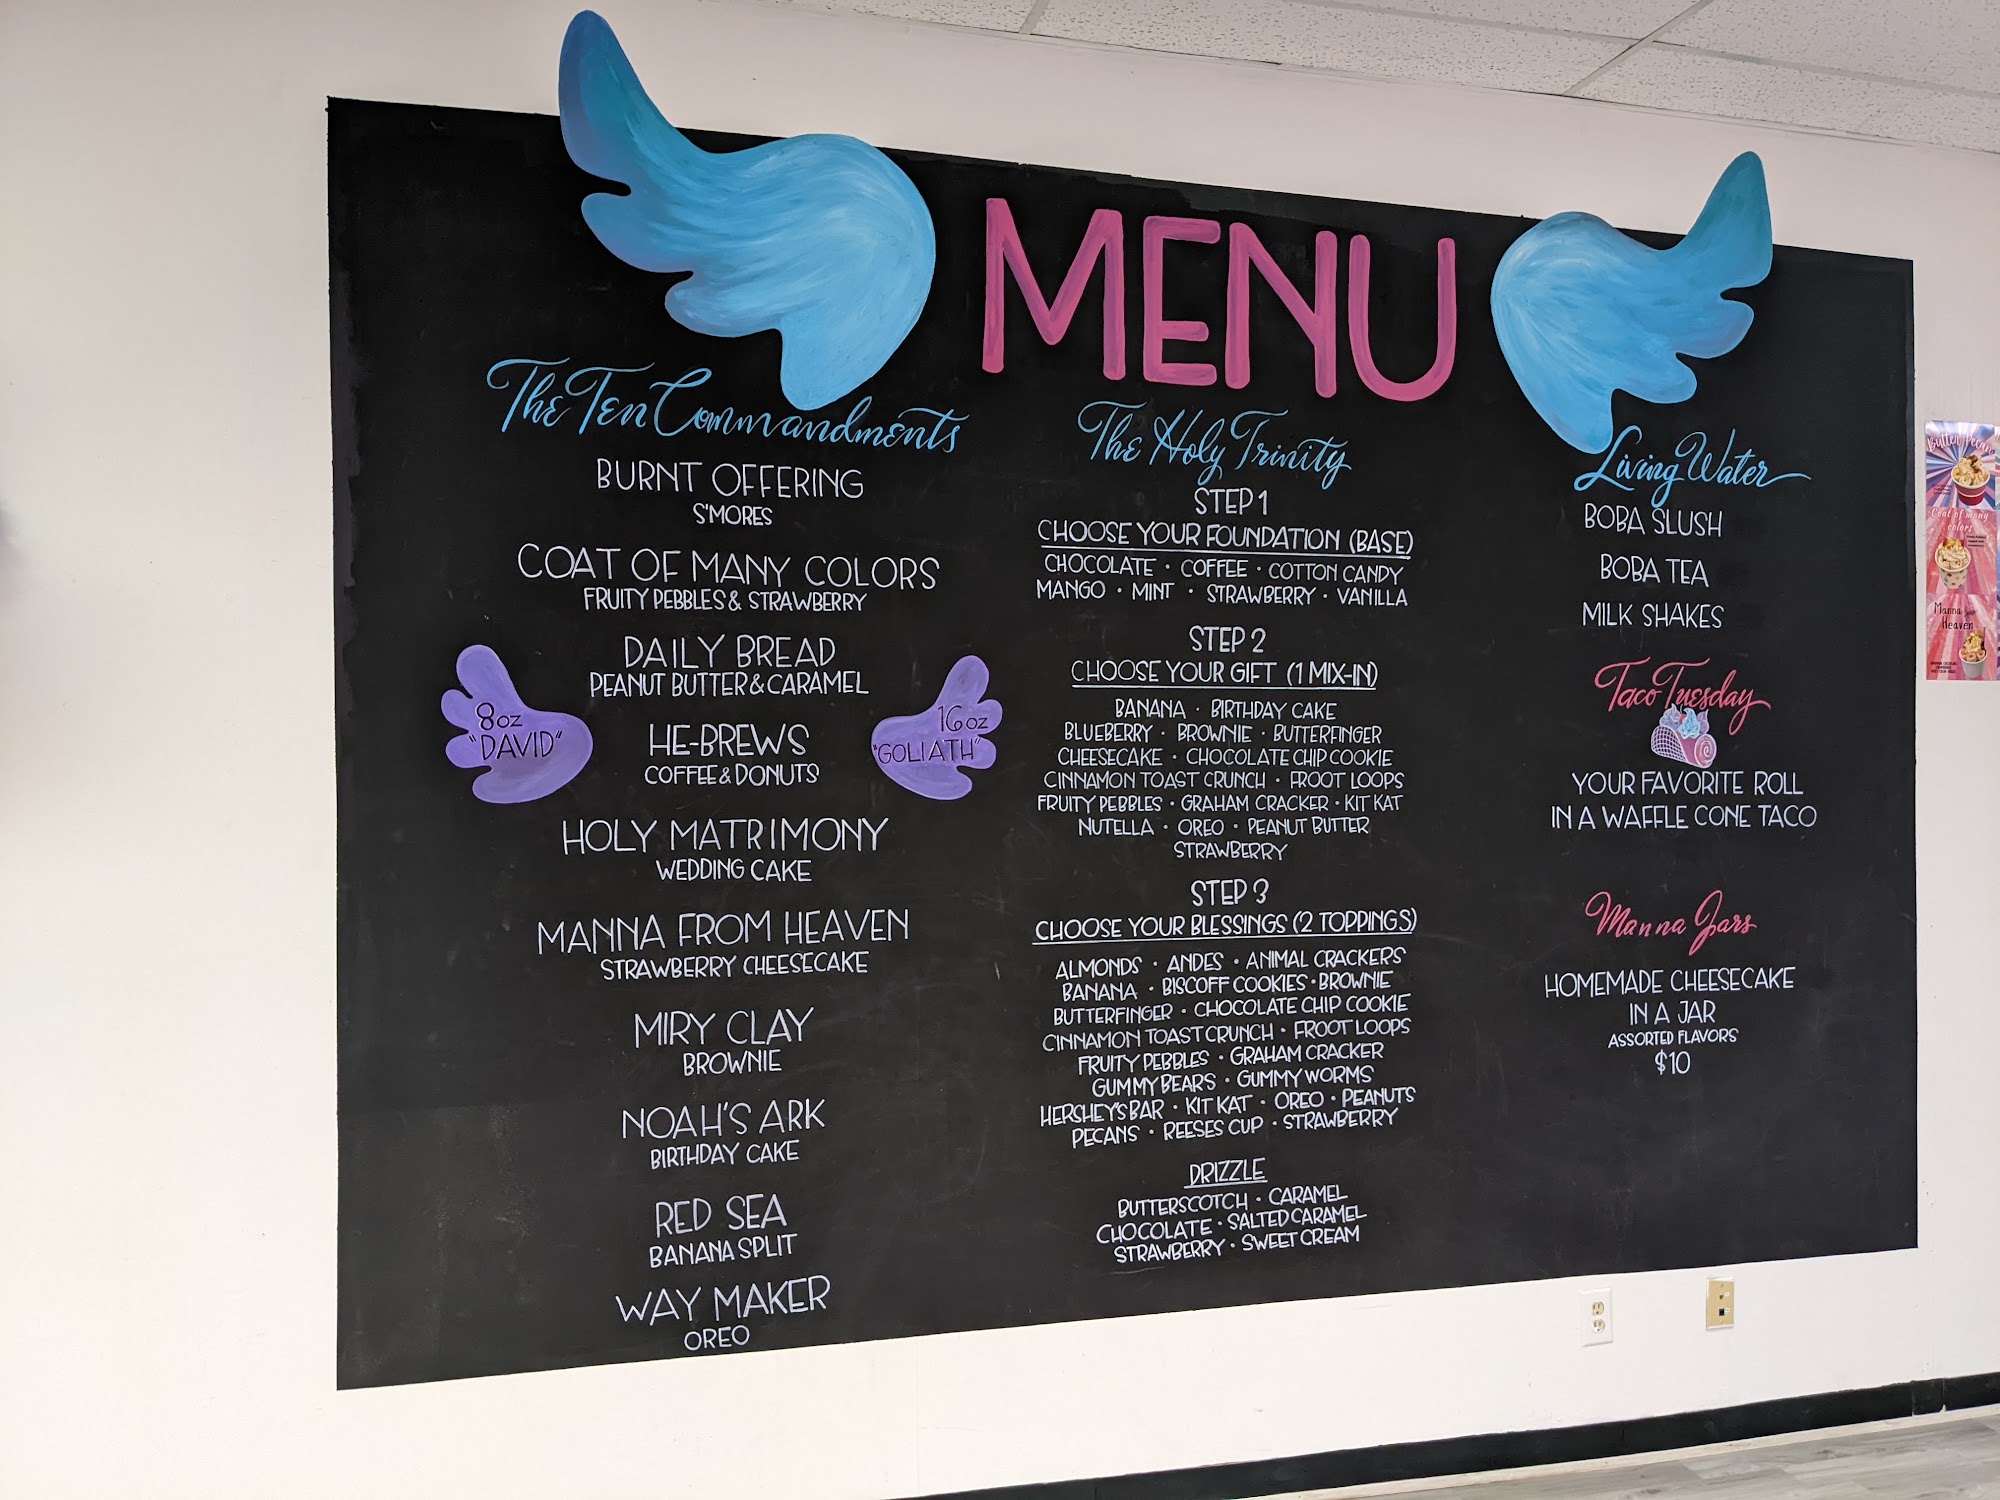 MENU
The Ten Commandments
BURNT OFFERING
S'MORES
COAT OF MANY COLORS
FRUITY PEBBLES & STRAWBERRY
DAILY BREAD
PEANUT BUTTER & CARAMEL
8 OZ
"DAVID"
HE-BREWS
COFFEE & DONUTS
16 OZ
"GOLIATH"
HOLY MATRIMONY
WEDDING CAKE
MANNA FROM HEAVEN
STRAWBERRY CHEESECAKE
MIRY CLAY
BROWNIE
NOAH'S ARK
BIRTHDAY CAKE
RED SEA
BANANA SPLIT
WAY MAKER
OREO
The Holy Trinity
STEP 1
CHOOSE YOUR FOUNDATION (BASE)
CHOCOLATE · COFFEE · COTTON CANDY
MANGO · MINT · STRAWBERRY · VANILLA
STEP 2
CHOOSE YOUR GIFT (1 MIX-IN)
BANANA · BIRTHDAY CAKE
BLUEBERRY · BROWNIE · BUTTERFINGER
CHEESECAKE · CHOCOLATE CHIP COOKIE
CINNAMON TOAST CRUNCH · FROOT LOOPS
FRUITY PEBBLES · GRAHAM CRACKER · KIT KAT
NUTELLA · OREO · PEANUT BUTTER
STRAWBERRY
STEP 3
CHOOSE YOUR BLESSINGS (2 TOPPINGS)
ALMONDS · ANDES · ANIMAL CRACKERS
BANANA · BISCOFF COOKIES · BROWNIE
BUTTERFINGER · CHOCOLATE CHIP COOKIE
CINNAMON TOAST CRUNCH · FROOT LOOPS
FRUITY PEBBLES · GRAHAM CRACKER
GUMMY BEARS · GUMMY WORMS
HERSHEY'S BAR · KIT KAT · OREO · PEANUTS
PECANS · REESES CUP · STRAWBERRY
DRIZZLE
BUTTERSCOTCH · CARAMEL
CHOCOLATE · SALTED CARAMEL
STRAWBERRY · SWEET CREAM
Living Water
BOBA SLUSH
BOBA TEA
MILK SHAKES
Taco Tuesday
YOUR FAVORITE ROLL
IN A WAFFLE CONE TACO
Manna Jars
HOMEMADE CHEESECAKE
IN A JAR
ASSORTED FLAVORS
$10
Butter Pecan
Coat of many
colors
Manna from
Heaven